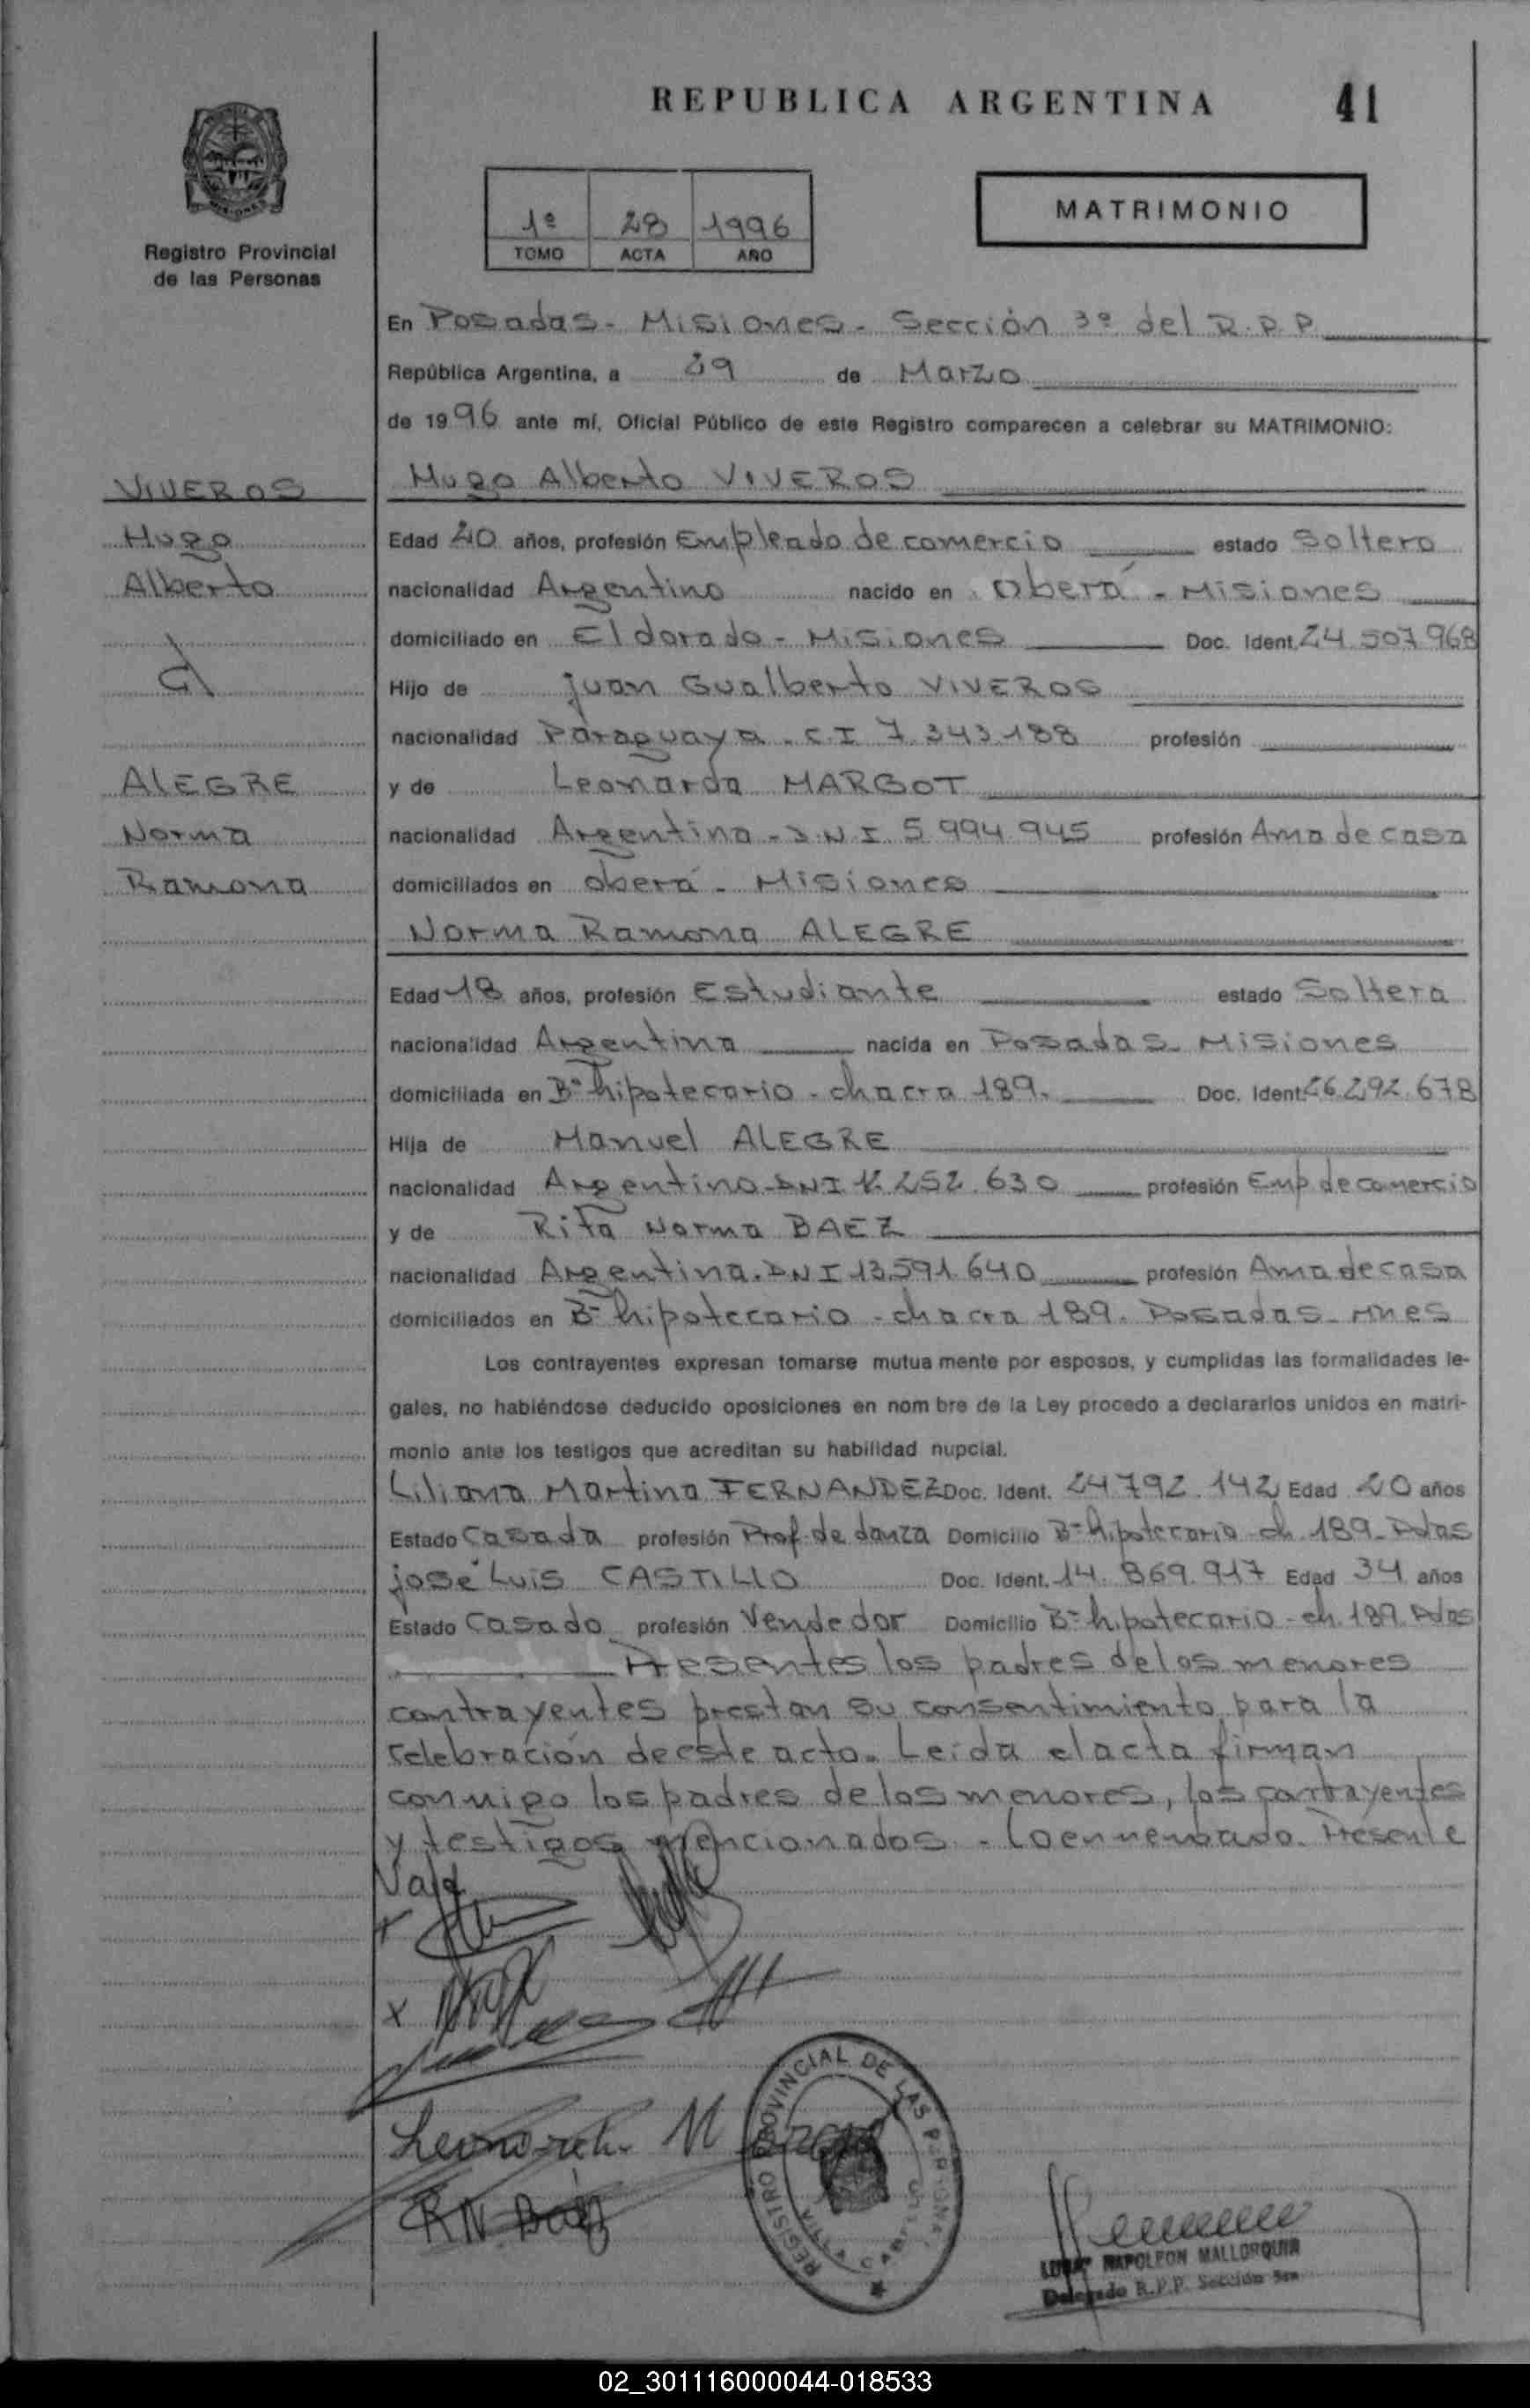 REPUBLICA ARGENTINA 41
MISIONES
Registro Provincial
de las Personas
1º 28 1996
TOMO ACTA AÑO
MATRIMONIO
En Posadas - Misiones - Sección 3º del R.P.P
República Argentina, a 29 de Marzo
de 1996 ante mí, Oficial Público de este Registro comparecen a celebrar su MATRIMONIO:
VIVEROS
Hugo
Alberto
ALEGRE
Norma
Ramona
Hugo Alberto VIVEROS
Edad 20 años, profesión Empleado de comercio estado Soltero
nacionalidad Argentino nacido en Oberá - Misiones
domiciliado en Eldorado - Misiones Doc. Ident. 24.507.968
Hijo de Juan Gualberto VIVEROS
nacionalidad Paraguaya - C.I 7.343.188 profesión
y de Leonarda MARGOT
nacionalidad Argentina - D.N.I. 5.994.945 profesión Ama de casa
domiciliados en Oberá - Misiones
Norma Ramona ALEGRE
Edad 18 años, profesión Estudiante estado Soltera
nacionalidad Argentina nacida en Posadas - Misiones
domiciliada en Bº hipotecario - chacra 189. Doc. Ident. 26.292.678
Hija de Manuel ALEGRE
nacionalidad Argentino - DNI 252.630 profesión Emp de comercio
y de Rita Norma BAEZ
nacionalidad Argentina. DNI 13.591.640 profesión Ama de casa
domiciliados en Bº hipotecario - chacra 189. Posadas - Mnes
Los contrayentes expresan tomarse mutua mente por esposos, y cumplidas las formalidades le-
gales, no habiéndose deducido oposiciones en nom bre de la Ley procedo a declararlos unidos en matri-
monio ante los testigos que acreditan su habilidad nupcial.
Liliana Martina FERNANDEZ Doc. Ident. 24.792.142 Edad 20 años
Estado Casada profesión Prof. de danza Domicilio Bº hipotecario - ch. 189 - Pdas
José Luis CASTILLO Doc. Ident. 14.869.917 Edad 34 años
Estado Casado profesión Vendedor Domicilio Bº hipotecario - ch. 189. Pdas
Presentes los padres de los menores
contrayentes prestan su consentimiento para la
celebración de este acto. Leída el acta firman
conmigo los padres de los menores, los contrayentes
y testigos mencionados - Lo enmendado. Presente
Vale
Leonarda M
RN Baez
REGISTRO PROVINCIAL DE LAS PERSONAS
NAPOLEON MALLORQUIN
Delegado R.P.P. Sección 3ra
02_301116000044-018533